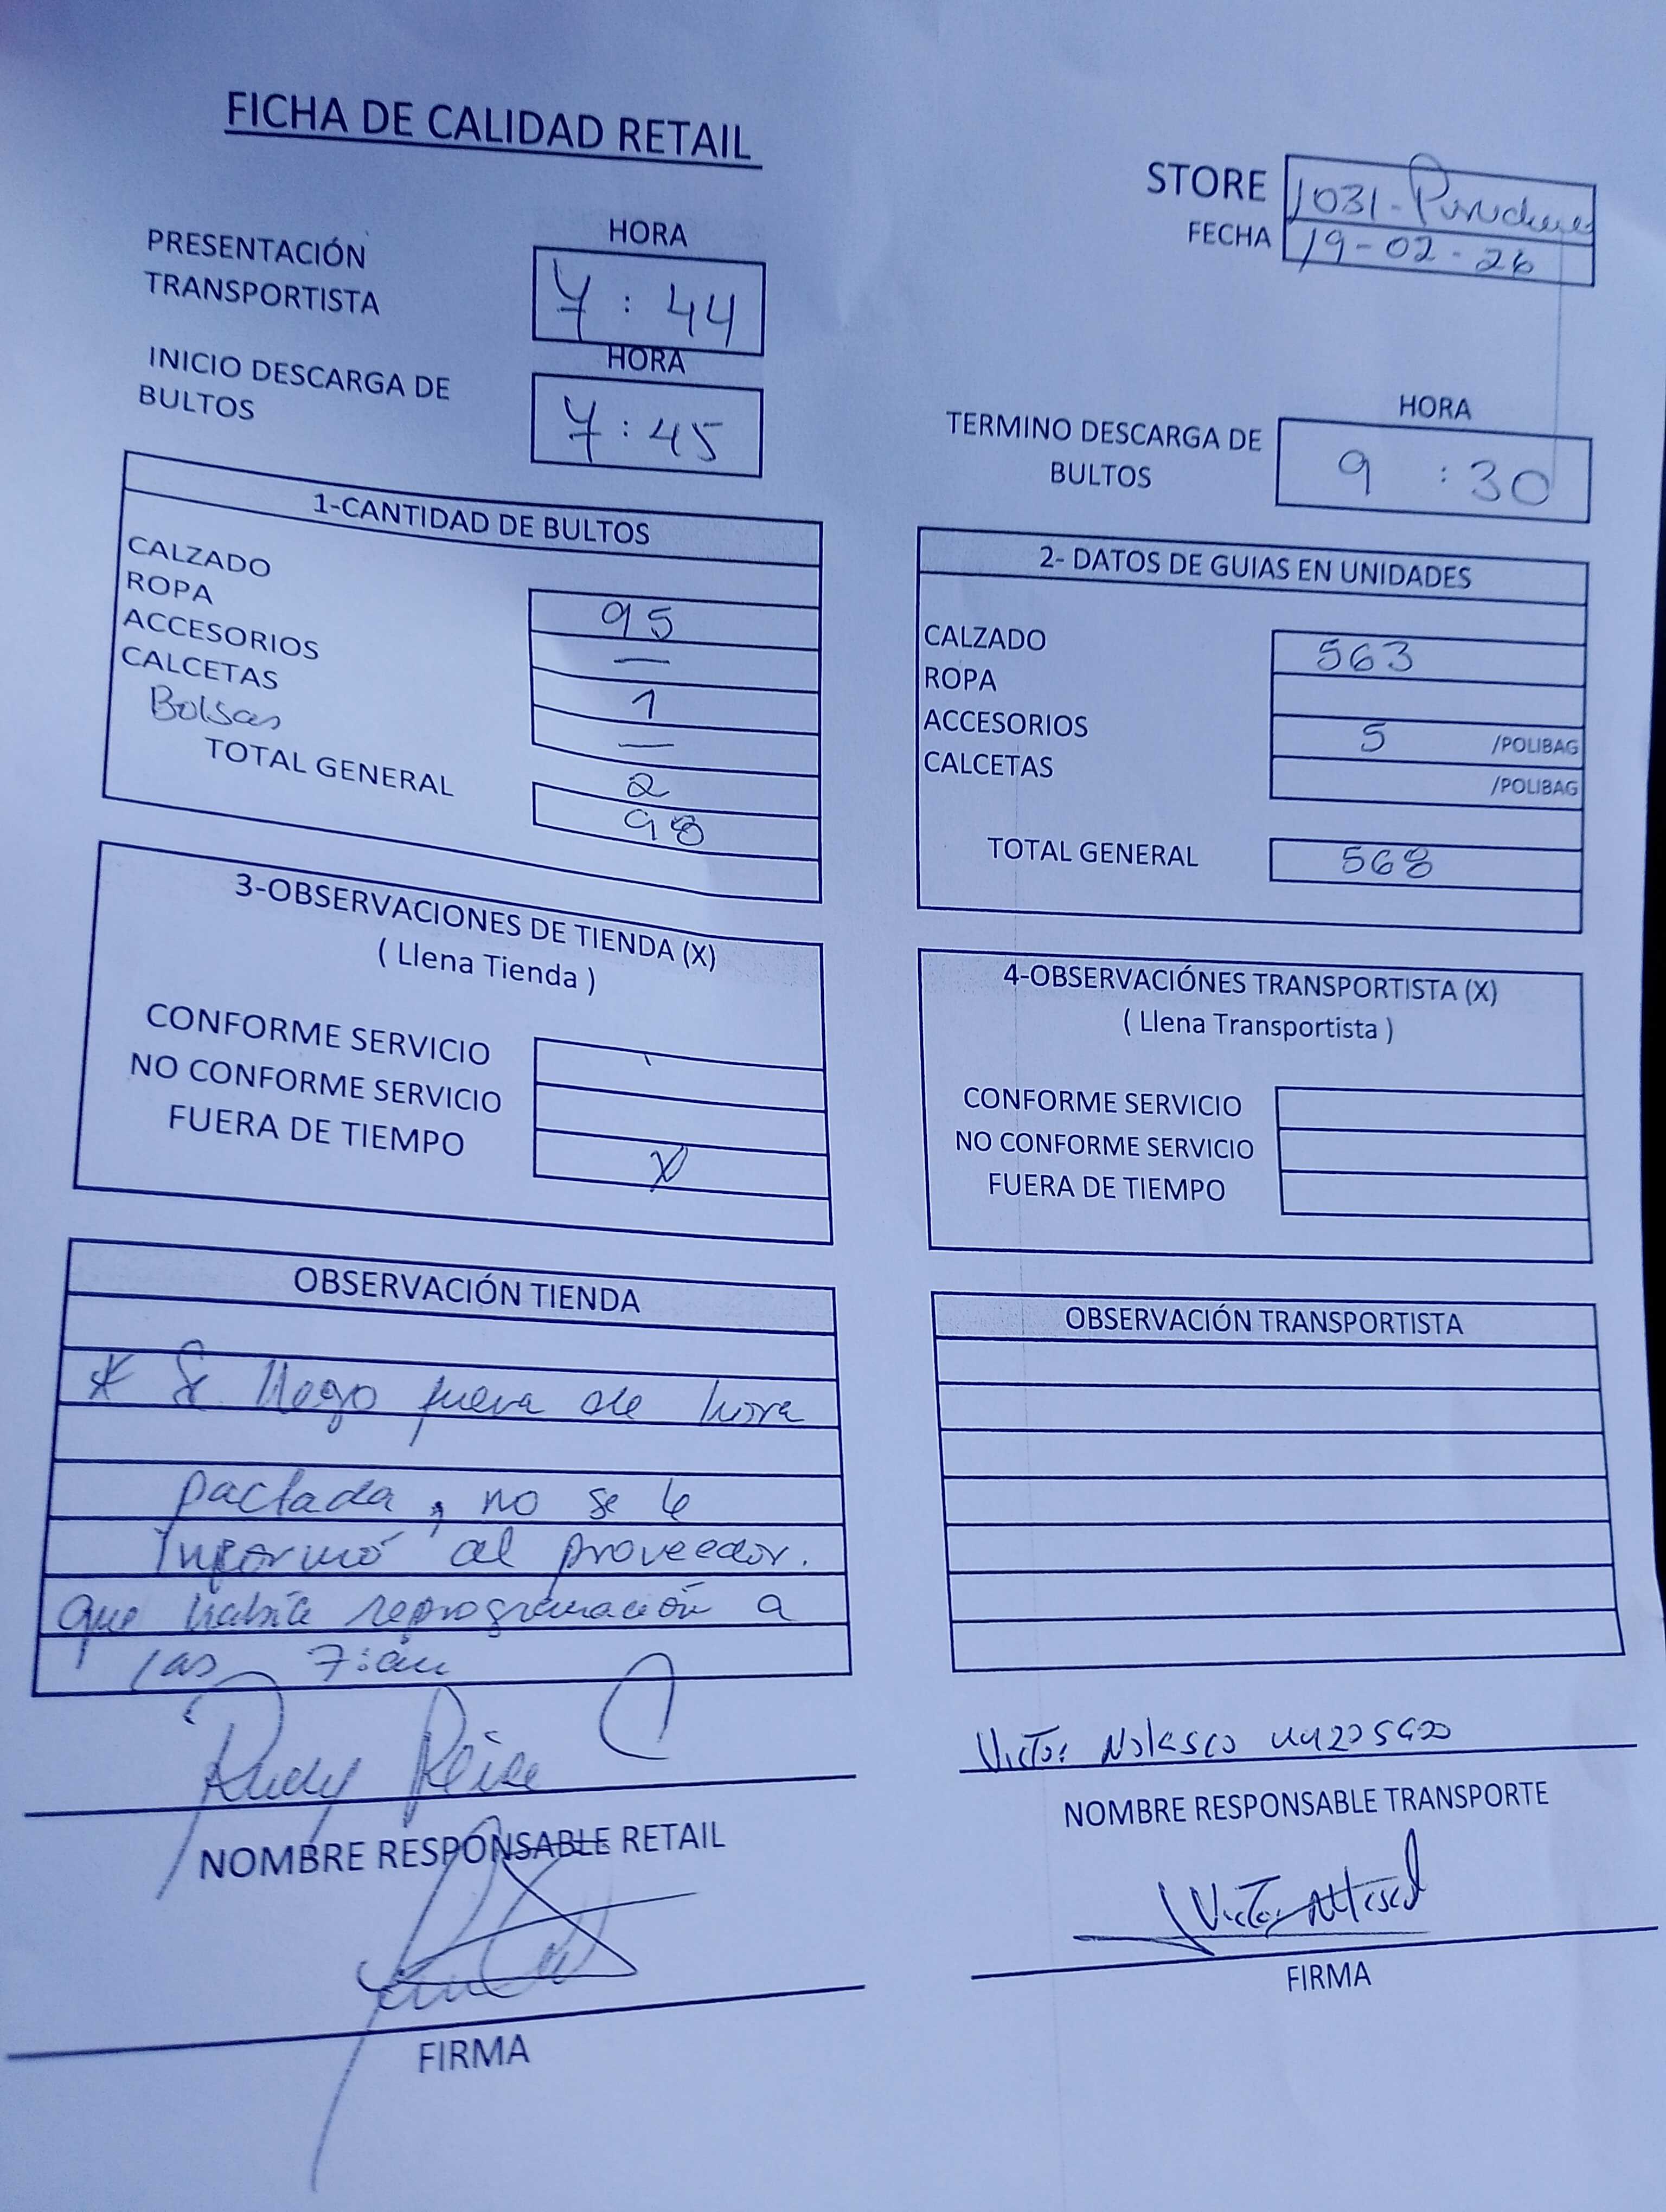 FICHA DE CALIDAD RETAIL
STORE 1031-Puruchuco
FECHA 19-02-26
PRESENTACIÓN TRANSPORTISTA
HORA
7:44
INICIO DESCARGA DE BULTOS
HORA
7:45
TERMINO DESCARGA DE BULTOS
HORA
9:30
1-CANTIDAD DE BULTOS
CALZADO 95
ROPA —
ACCESORIOS 1
CALCETAS —
Bolsas 2
TOTAL GENERAL 98
2- DATOS DE GUIAS EN UNIDADES
CALZADO 563
ROPA
ACCESORIOS 5 /POLIBAG
CALCETAS /POLIBAG
TOTAL GENERAL 568
3-OBSERVACIONES DE TIENDA (X)
( Llena Tienda )
CONFORME SERVICIO
NO CONFORME SERVICIO
FUERA DE TIEMPO X
4-OBSERVACIÓNES TRANSPORTISTA (X)
( Llena Transportista )
CONFORME SERVICIO
NO CONFORME SERVICIO
FUERA DE TIEMPO
OBSERVACIÓN TIENDA
* Se llego fuera de hora
pactada, no se le
informó al proveedor.
que había reprogramación a
las 7:am
OBSERVACIÓN TRANSPORTISTA
Rudy
NOMBRE RESPONSABLE RETAIL
FIRMA
Victor Nolasco
NOMBRE RESPONSABLE TRANSPORTE
FIRMA